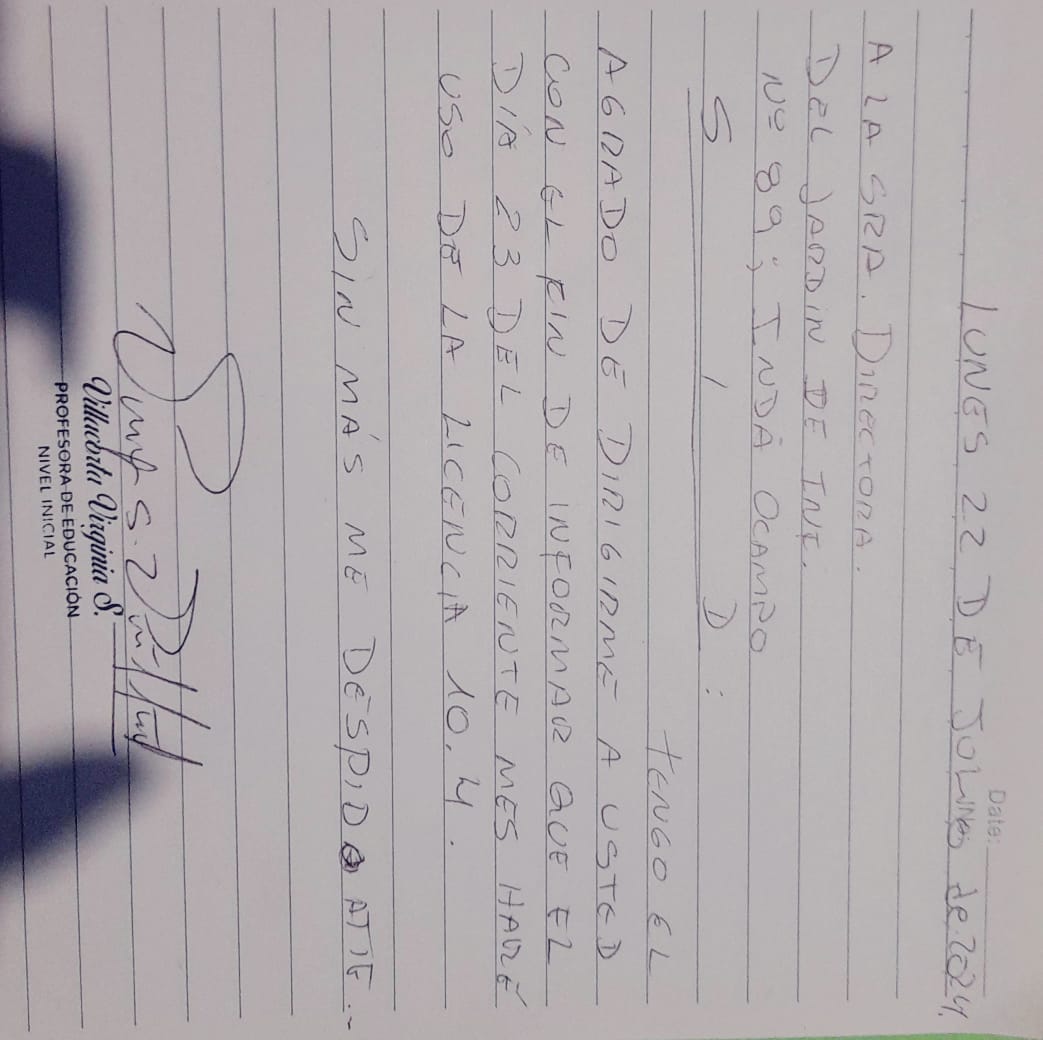 Date:
LUNES 22 DE JULIO de 2024.
A LA SRA. DIRECTORA.
DEL JARDIN DE INF.
Nº 89; INDA OCAMPO
S / D :
tENGO EL
AGRADO DE DIRIGIRME A USTED
CON EL FIN DE INFORMAR QUE EL
DÍA 23 DEL CORRIENTE MES HARÉ
USO DE LA LICENCIA 10.4.
SIN MÁS ME DESPIDO ATTE.
Villacorta Virginia S.
PROFESORA DE EDUCACIÓN
NIVEL INICIAL